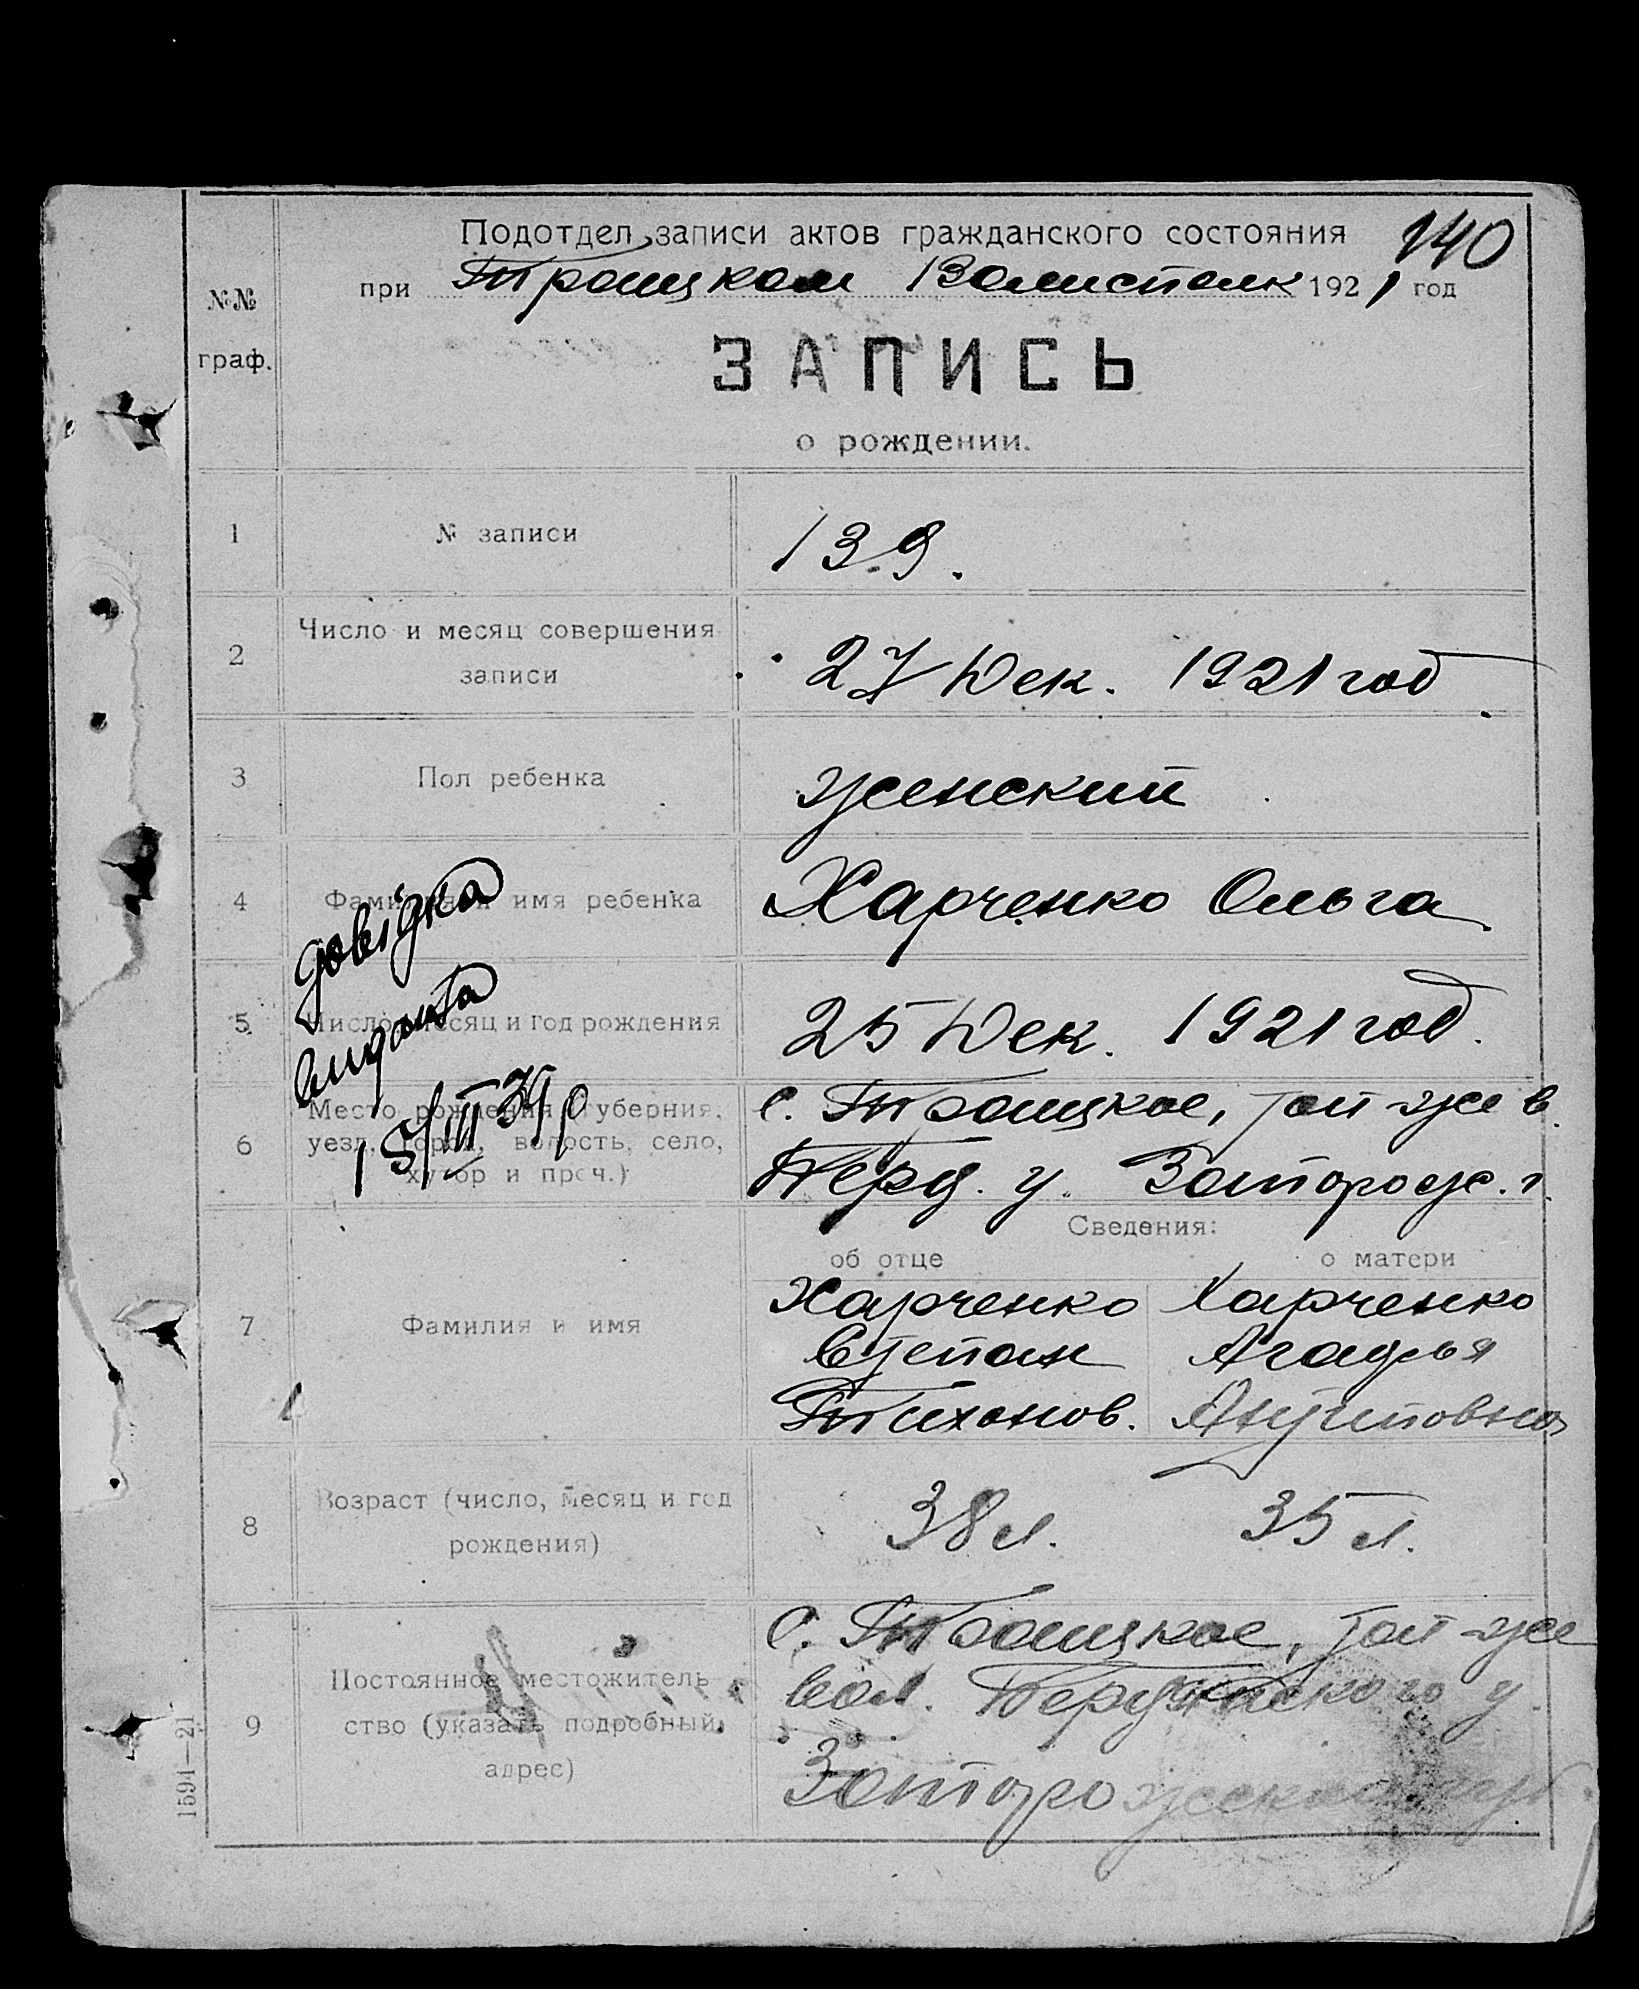 140
Подотдел записи актов гражданского состояния
при Троицком Волисполк 1921 год
№№ граф.
ЗАПИСЬ
о рождении.
1 № записи 139.
2 Число и месяц совершения записи 27 Дек. 1921 год
3 Пол ребенка женский
4 Фамилия и имя ребенка Харченко Ольга
5 Число, месяц и год рождения 25 Дек. 1921 год.
6 Место рождения (губерния, уезд, город, волость, село, хутор и проч.)
с. Троицкое, той-же в.
Берд. у. Запорож. г.
довідка
видана
15/III 39 р
Сведения:
об отце о матери
7 Фамилия и имя
Харченко Харченко
Степан Агафья
Тихонов. Антиповна
8 Возраст (число, месяц и год рождения) 38 л. 35 л.
9 Постоянное местожительство (указать подробный адрес)
С. Троицкое, той-же
вол. Бердянского у.
Запорожской губ.
1594—21